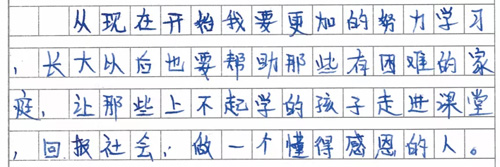 从现在开始我要更加的努力学习
，长大以后也要帮助那些存困难的家
庭，让那些上不起学的孩子走进课堂
，回报社会，做一个懂得感恩的人。